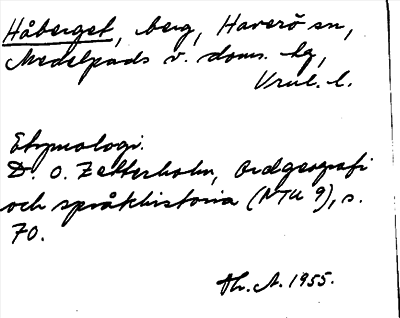 Håberget, berg, Haverö sn,
Medelpads v. doms. hg,
Vnl. l.
Etymologi.
D. O. Zetterholm, Ordgeografi
och språkhistoria (NTU 9), s.
70.
Th. A. 1955.